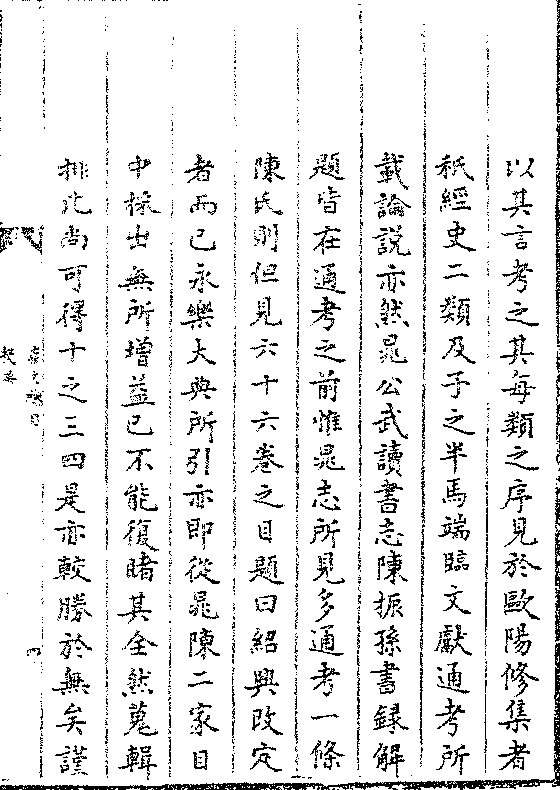 以其言考之其每類之序見於歐陽修集者
秖經史二類及子之半馬端臨文獻通考所
載論説亦然晁公武讀書志陳振孫書録解
題皆在通考之前惟晁志所見多通考一條
陳氏則但見六十六卷之目題曰紹興改定
者而已永樂大典所引亦即從晁陳二家目
中採出無所增益已不能復睹其全然蒐輯
排比尚可得十之三四是亦較勝於無矣謹
崇文總目
提要